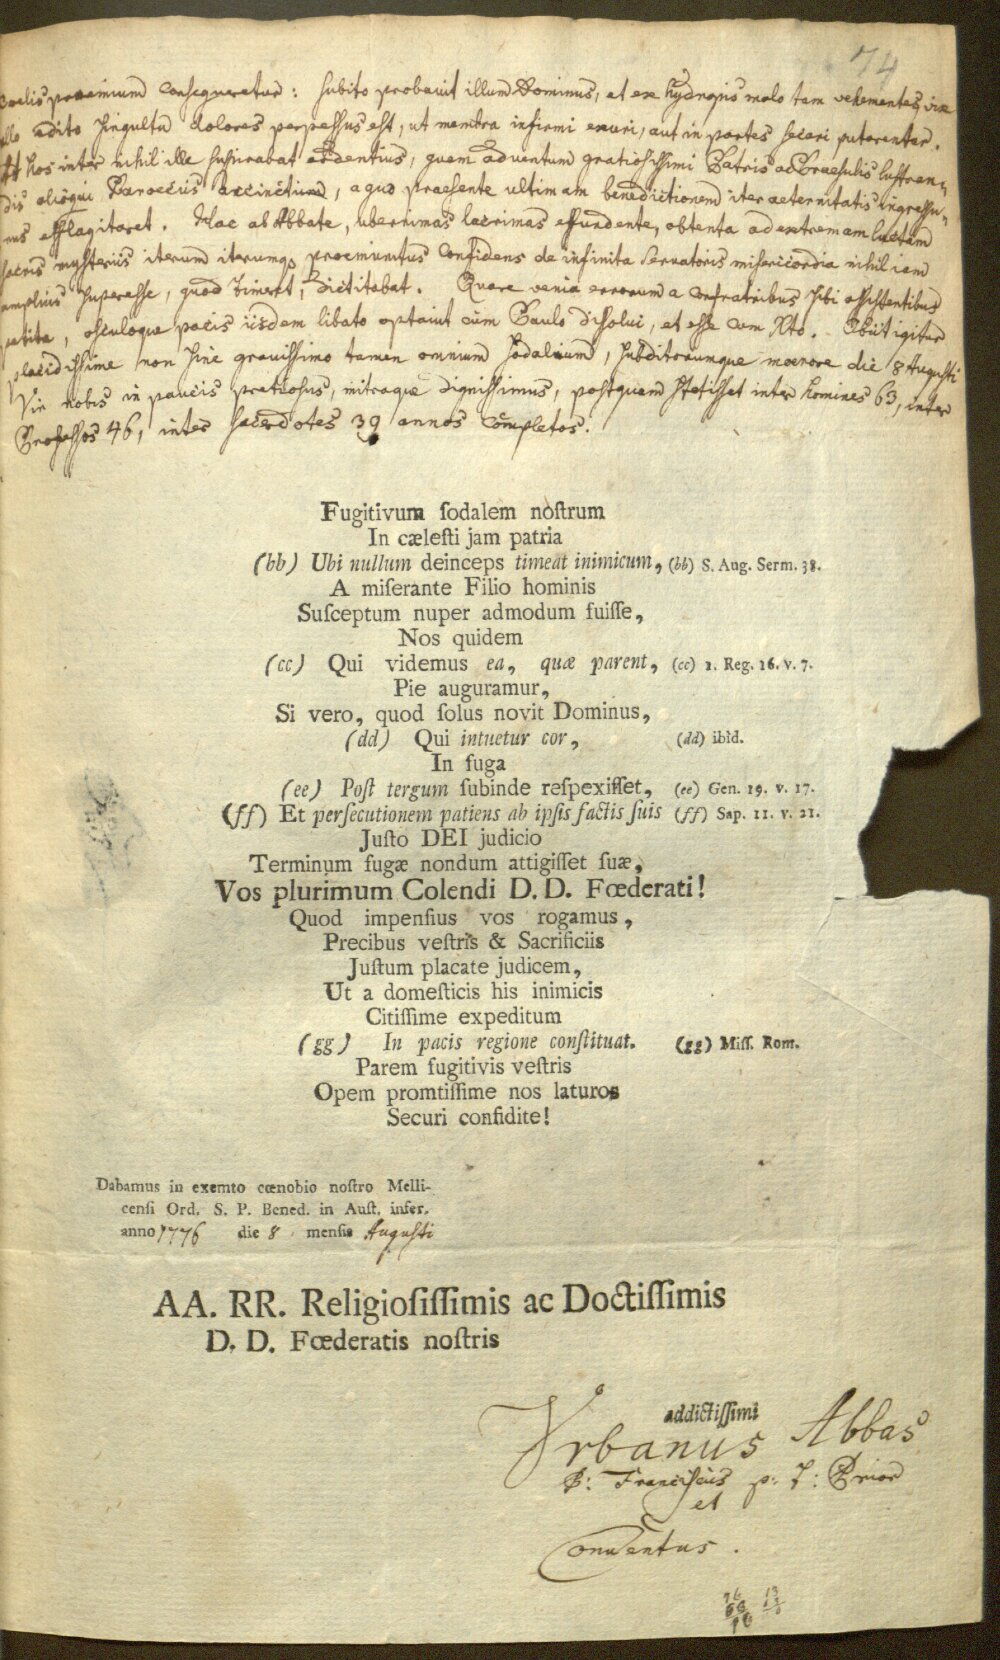 74
coelis praemium consequeretur: subito probavit illum Dominus, et ex hydropis malo tam vehementes, vix
ullo edito singultu dolores perpessus est, ut membra infirmi exuri, aut in partes secari putarentur.
At hos inter nihil ille susurabat ardentius, quam adventum gratiosissimi Patris ac Praesulis lustran„
dis alicqui Paroeciis accinctium, a quo praesente ultimam benedictionem iter aeternitatis ingressu„
rus efflagitaret. Hac ab Abbate, uberrimas lacrimas effundente, obtenta ad extremam luctam
sacris mysteriis iterum iterumq praemunitus confidens de infinita Servatoris misericordia nihil iam
amplius superesse, quod timeret, dictitabat. Quare venia errorum a confratribus sibi assistentibus
petita, osculoque pacis iisdem libato optavit cum Paulo dissolvi, et esse cum Xto. Obiit igitur
placidissime non sine gravissimo tamen omnium sodalium, subditorumque moerore die 8 Augusti
Vir nobis in paucis pretiosus, mitraque dignissimus, postquam stetisset inter homines 63, inter
Professos 46, inter sacerdotes 39 annos completos.
Fugitivum ſodalem noſtrum
In cæleſti jam patria
(bb) Ubi nullum deinceps timeat inimicum, (bb) S. Aug. Serm. 38.
A miſerante Filio hominis
Suſceptum nuper admodum fuiſſe,
Nos quidem
(cc) Qui videmus ea, quæ parent, (cc) 1. Reg. 16. v. 7.
Pie auguramur,
Si vero, quod ſolus novit Dominus,
(dd) Qui intuetur cor, (dd) ibid.
In fuga
(ee) Poſt tergum ſubinde reſpexiſſet, (ee) Gen. 19. v. 17.
(ff) Et perſecutionem patiens ab ipſis factis ſuis (ff) Sap. 11. v. 21.
Juſto DEI judicio
Terminum fugæ nondum attigiſſet ſuæ,
Vos plurimum Colendi D. D. Fœderati!
Quod impenſius vos rogamus,
Precibus veſtris & Sacrificiis
Juſtum placate judicem,
Ut a domeſticis his inimicis
Citiſſime expeditum
(gg) In pacis regione conſtituat. (gg) Miſſ. Rom.
Parem fugitivis veſtris
Opem promtiſſime nos laturos
Securi confidite!
Dabamus in exemto cœnobio noſtro Melli-
cenſi Ord. S. P. Bened. in Auſt. infer.
anno 1776 die 8 mensis Augusti
AA. RR. Religioſiſſimis ac Doctiſſimis
D. D. Fœderatis noſtris
addictiſſimi
Urbanus Abbas
P: Franciscus p: t: Prior
et
Conventus.